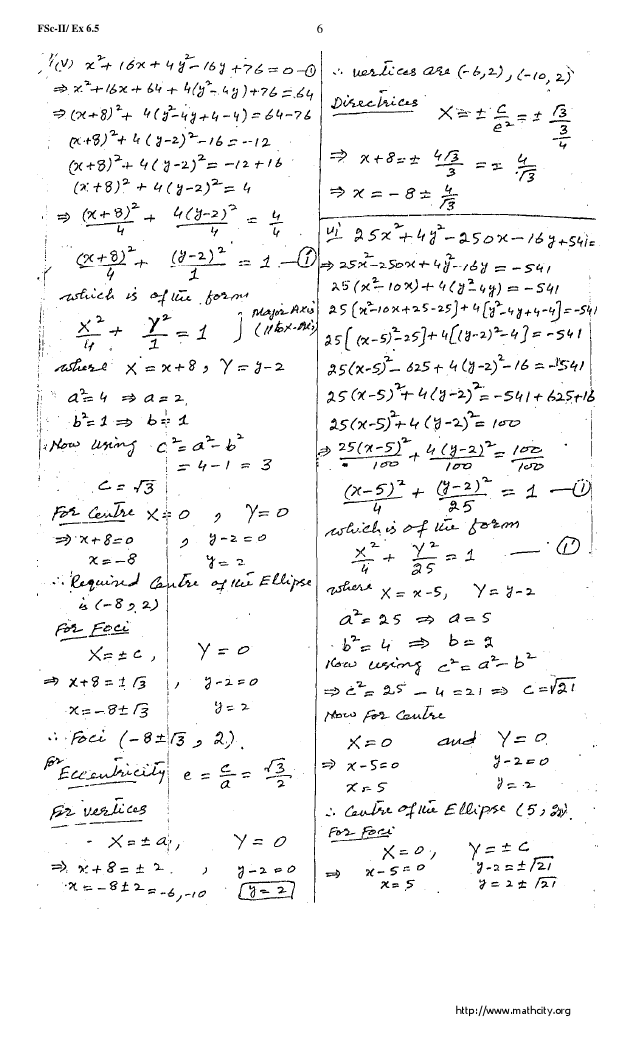 FSc-II/ Ex 6.5
6
(v) x²+16x+4y²-16y+76=0 -①
⇒ x²+16x+64+4(y²-4y)+76=64
⇒ (x+8)²+4(y²-4y+4-4)=64-76
(x+8)²+4(y-2)²-16=-12
(x+8)²+4(y-2)²=-12+16
(x+8)²+4(y-2)²=4
⇒ (x+8)²/4 + 4(y-2)²/4 = 4/4
(x+8)²/4 + (y-2)²/1 = 1 -①
which is of the form
X²/4 + Y²/1 = 1 } Major Axis (11 to x-axis)
where X = x+8, Y = y-2
a²=4 ⇒ a=2,
b²=1 ⇒ b=1
Now using c²=a²-b²
= 4-1 = 3
c = √3
For Centre X=0 , Y=0
⇒ x+8=0 , y-2=0
x=-8 y=2
∴ Required Centre of the Ellipse
is (-8, 2)
For Foci
X=±c, Y=0
⇒ x+8=±√3 , y-2=0
x=-8±√3 y=2
∴ Foci (-8±√3, 2).
For Eccentricity e = c/a = √3/2
For vertices
X=±a, Y=0
⇒ x+8=±2 , y-2=0
x=-8±2=-6,-10 y=2
∴ vertices are (-6,2), (-10,2)
Directrices X=± c/e² = ± √3/(3/4)
⇒ x+8=± 4√3/3 = ± 4/√3
⇒ x=-8± 4/√3
vi 25x²+4y²-250x-16y+541=
⇒ 25x²-250x+4y²-16y=-541
25(x²-10x)+4(y²-4y)=-541
25[x²-10x+25-25]+4[y²-4y+4-4]=-541
25[(x-5)²-25]+4[(y-2)²-4]=-541
25(x-5)²-625+4(y-2)²-16=-541
25(x-5)²+4(y-2)²=-541+625+16
25(x-5)²+4(y-2)²=100
⇒ 25(x-5)²/100 + 4(y-2)²/100 = 100/100
(x-5)²/4 + (y-2)²/25 = 1 -①
which is of the form
X²/4 + Y²/25 = 1 — ①'
where X=x-5, Y=y-2
a²=25 ⇒ a=5
b²=4 ⇒ b=2
Now using c²=a²-b²
⇒ c²=25-4=21 ⇒ c=√21
Now For Centre
X=0 and Y=0
⇒ x-5=0 y-2=0
x=5 y=2
∴ Centre of the Ellipse (5, 2).
For Foci
X=0, Y=±c
⇒ x-5=0 y-2=±√21
x=5 y=2±√21
http://www.mathcity.org